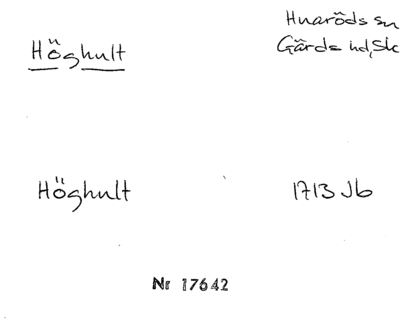 Höghult
Huaröds sn
Gärds hd, Sk
Höghult
1713 Jb
Nr 17642